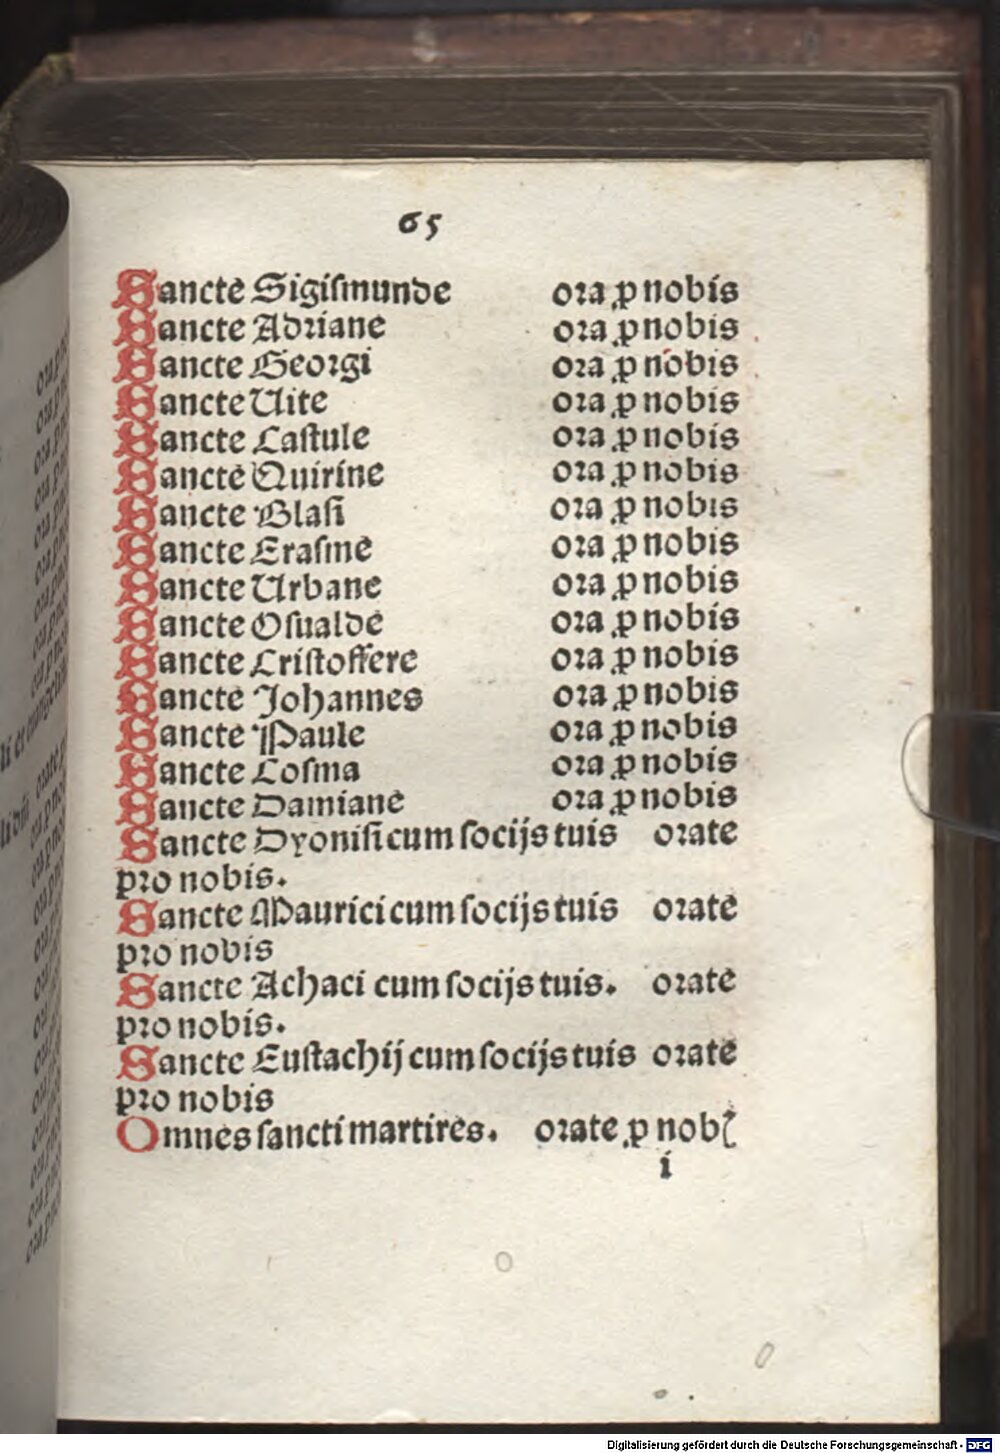 65
Sancte Sigiſmunde ora ꝓ nobis
Sancte Adriane ora ꝓ nobis
Sancte Georgi ora ꝓ nobis
Sancte Uite ora ꝓ nobis
Sancte Caſtule ora ꝓ nobis
Sancte Quirine ora ꝓ nobis
Sancte Blaſi ora ꝓ nobis
Sancte Eraſme ora ꝓ nobis
Sancte Urbane ora ꝓ nobis
Sancte Oſualde ora ꝓ nobis
Sancte Criſtoffere ora ꝓ nobis
Sancte Johannes ora ꝓ nobis
Sancte Paule ora ꝓ nobis
Sancte Coſma ora ꝓ nobis
Sancte Damiane ora ꝓ nobis
Sancte Dyoniſi cum ſocijs tuis orate
pro nobis.
Sancte Maurici cum ſocijs tuis orate
pro nobis
Sancte Achaci cum ſocijs tuis. orate
pro nobis.
Sancte Euſtachij cum ſocijs tuis orate
pro nobis
Omnes ſancti martires. orate ꝓ nobꝭ
i
Digitalisierung gefördert durch die Deutsche Forschungsgemeinschaft - DFG